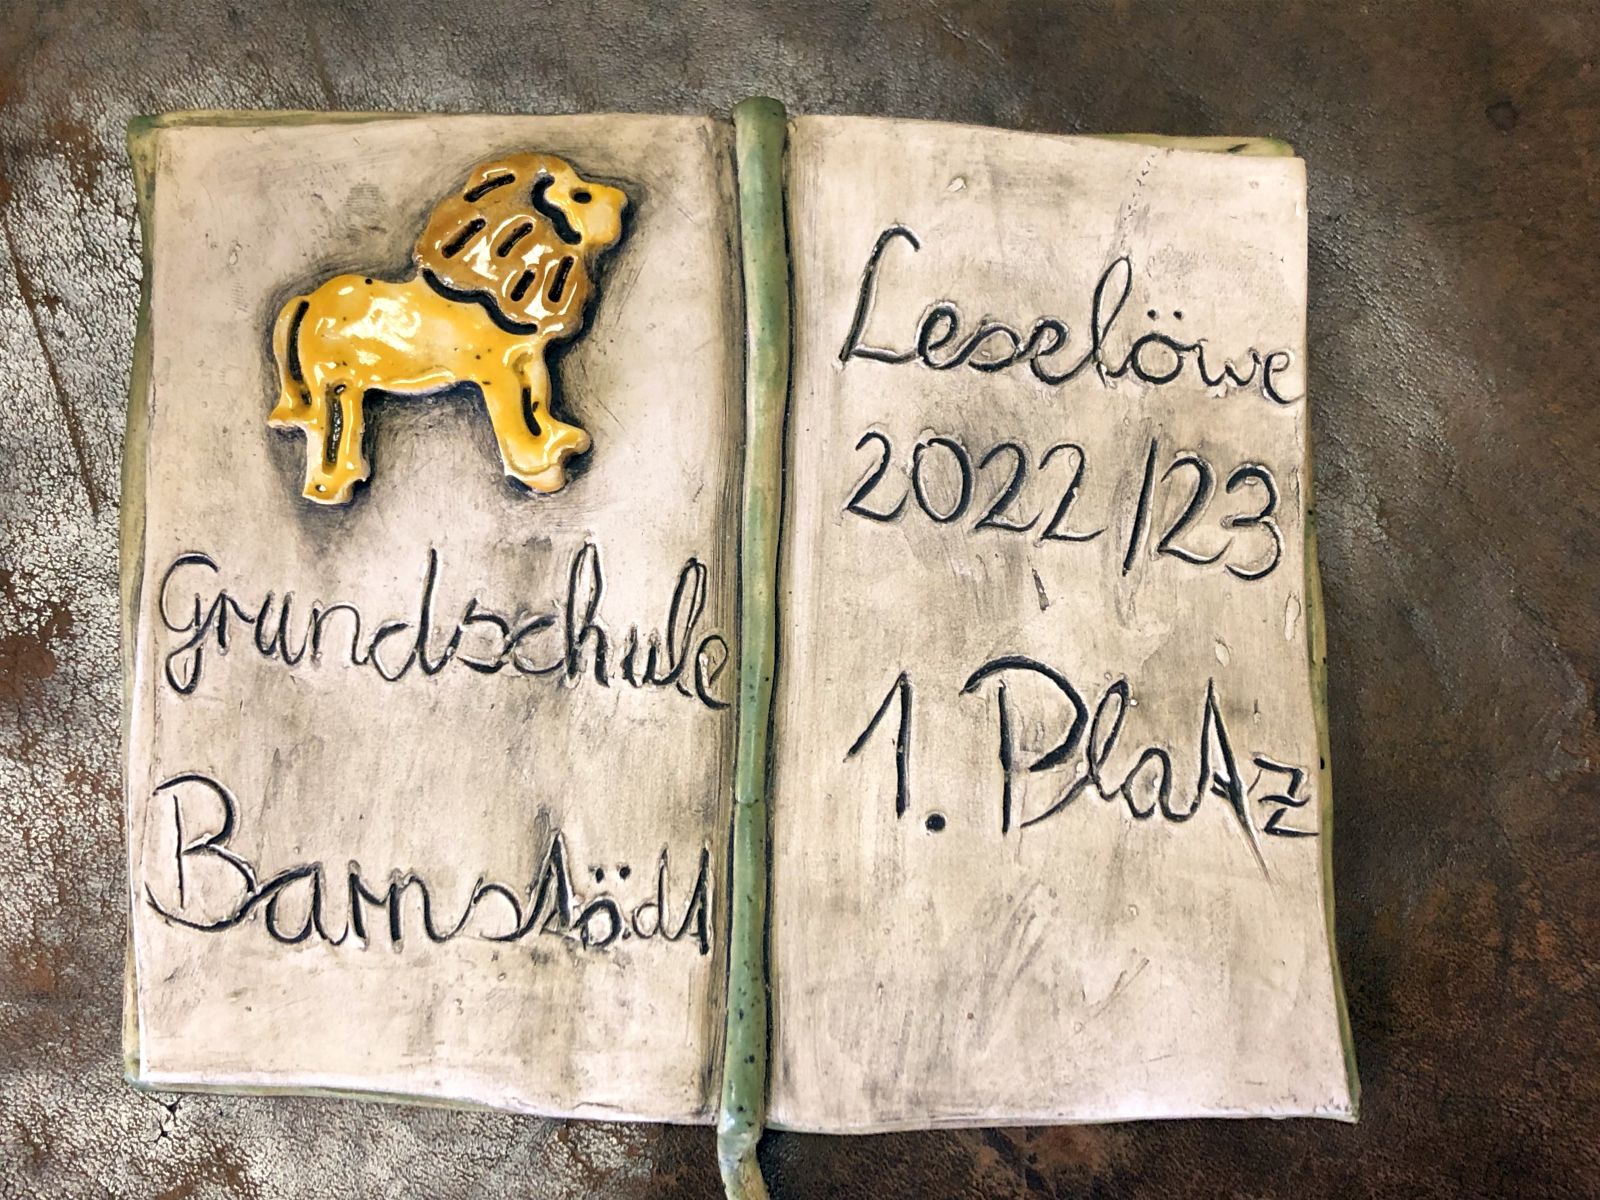 Grundschule
Barnstädt
Leselöwe
2022/23
1. Platz